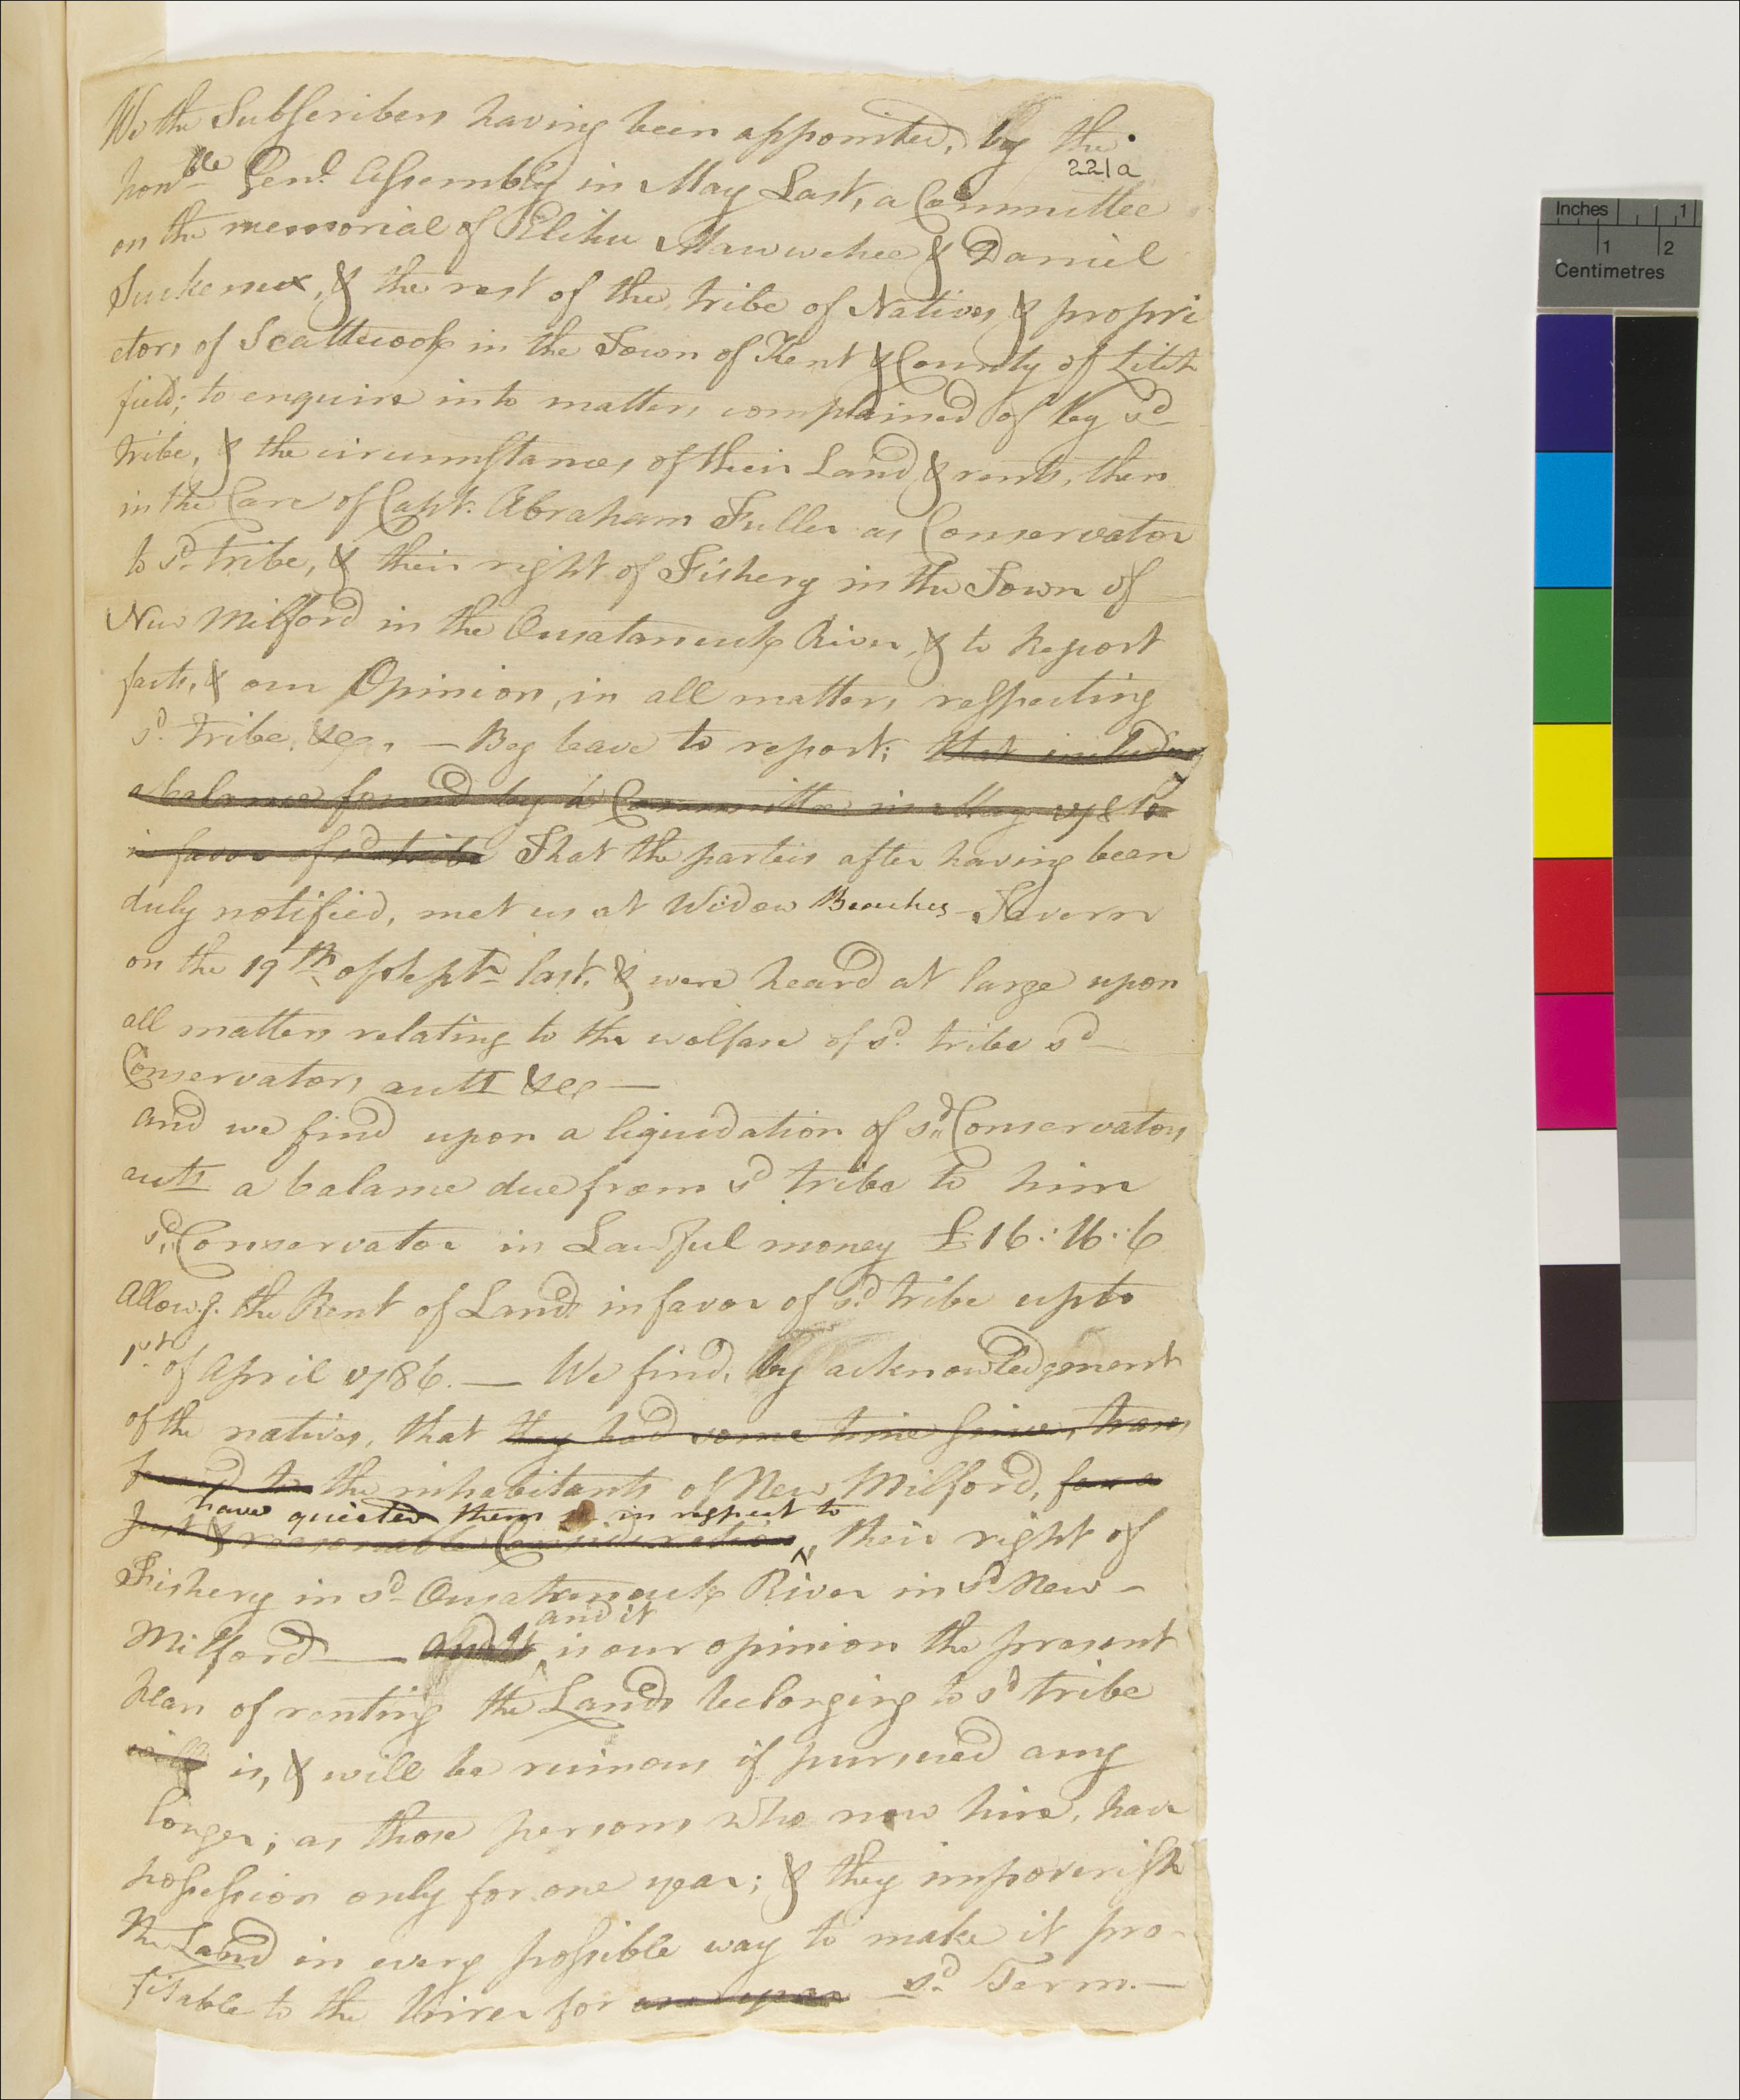 We the Subscribers having been appointed, by the
221a
honble Genl. Assembly in May Last, a Committee
on the memorial of Elihu Mawwehee & Daniel
Suckenux, & the rest of the tribe of Natives & propri
etors of Scatticook in the Town of Kent & County of Litch
field; to enquire into matters complained of by sd
tribe, & the circumstances of their Land & rents, then
in the Care of Capt. Abraham Fuller as Conservator
to sd. tribe, & their right of Fishery in the Town of
New Milford in the Ousatanuck River, & to Report
facts, & our Opinion, in all matters respecting
sd. tribe, &c, — Beg leave to report; that including
a balance found by a Committee in May
in favor of sd tribe That the parties after having been
duly notified, met us at Widow Beaches Tavern
on the 19th of Septr last, & were heard at large upon
all matters relating to the welfare of sd. tribe sd
Conservators actts &c —
and we find upon a liquidation of sd. Conservators
actts a balance due from sd tribe to him
sd. Conservator in Lawful money £16:16:6
Allowg. the Rent of Lands in favor of sd. tribe upto
1st. of April 1786. — We find, by acknowledgment
of the natives, that they had some time since, trans
ferred to the inhabitants of New Milford, for a
have quieted them in respect to
Just & reasonable Consideration, their right of
Fishery in sd Ousatanuck River in sd. New-
and it
Milford — and it is our opinion the present
plan of renting the Lands belonging to sd tribe
will is, & will be ruinous if pursued any
longer; as those persons who now hire, have
possession only for one year; & they impoverish
the Land in every possible way to make it pro-
fitable to the hirer for one year sd. Term. —